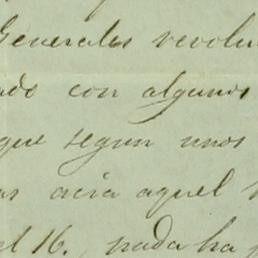 Generales revolu
ado con algunos
que segun unos
as acia aquel
el 16., nada ha